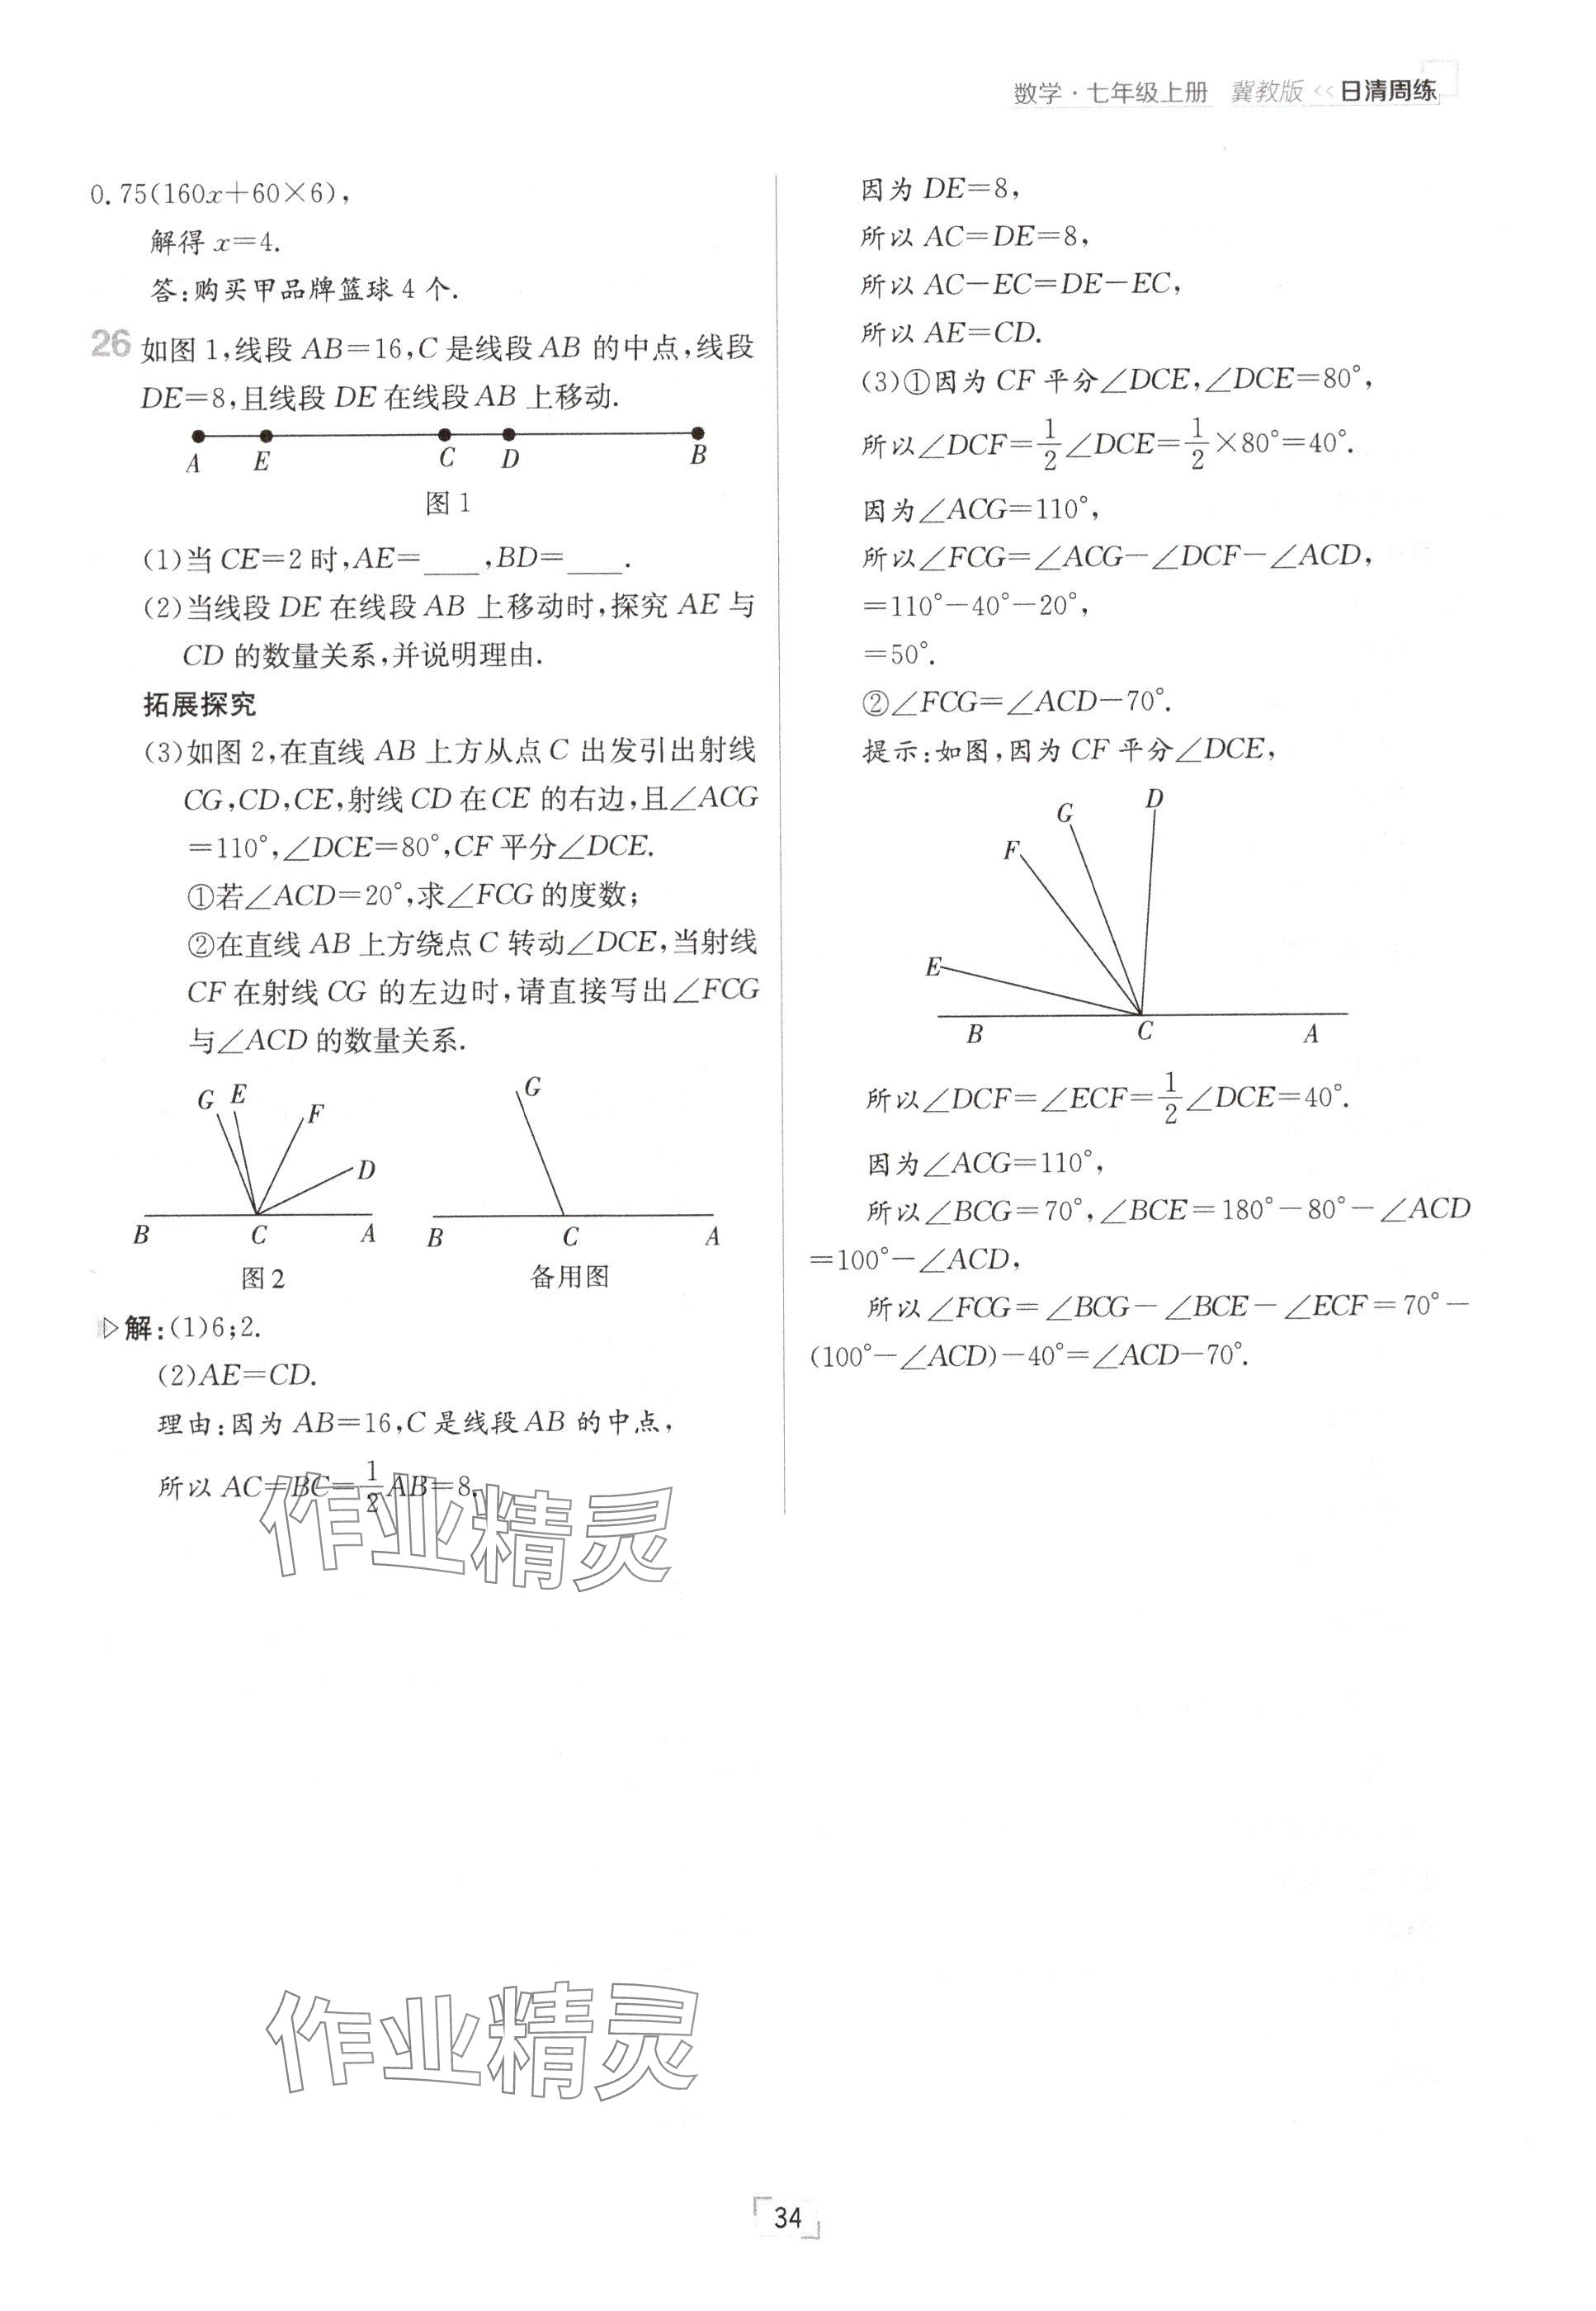 数学·七年级上册 冀教版 << 日清周练
0.75(160x+60×6),
解得 x=4.
答:购买甲品牌篮球 4 个.
26 如图 1,线段 AB=16,C 是线段 AB 的中点,线段
DE=8,且线段 DE 在线段 AB 上移动.
A E C D B
图 1
(1)当 CE=2 时,AE=____,BD=____.
(2)当线段 DE 在线段 AB 上移动时,探究 AE 与
CD 的数量关系,并说明理由.
拓展探究
(3)如图 2,在直线 AB 上方从点 C 出发引出射线
CG,CD,CE,射线 CD 在 CE 的右边,且∠ACG
=110°,∠DCE=80°,CF 平分∠DCE.
①若∠ACD=20°,求∠FCG 的度数;
②在直线 AB 上方绕点 C 转动∠DCE,当射线
CF 在射线 CG 的左边时,请直接写出∠FCG
与∠ACD 的数量关系.
G E F D B C A
图 2
G B C A
备用图
解:(1)6;2.
(2)AE=CD.
理由:因为 AB=16,C 是线段 AB 的中点,
所以 AC=BC=1/2AB=8.
因为 DE=8,
所以 AC=DE=8,
所以 AC-EC=DE-EC,
所以 AE=CD.
(3)①因为 CF 平分∠DCE,∠DCE=80°,
所以∠DCF=1/2∠DCE=1/2×80°=40°.
因为∠ACG=110°,
所以∠FCG=∠ACG-∠DCF-∠ACD,
=110°-40°-20°,
=50°.
②∠FCG=∠ACD-70°.
提示:如图,因为 CF 平分∠DCE,
D
G
F
E
B C A
所以∠DCF=∠ECF=1/2∠DCE=40°.
因为∠ACG=110°,
所以∠BCG=70°,∠BCE=180°-80°-∠ACD
=100°-∠ACD,
所以∠FCG=∠BCG-∠BCE-∠ECF=70°-
(100°-∠ACD)-40°=∠ACD-70°.
作业精灵
作业精灵
34